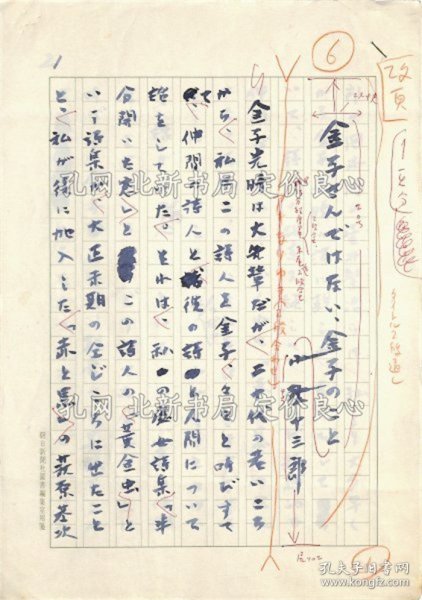 改頁
6
21
金子さんではない、金子のこと
小野十三郎
金子光晴は大先輩だが、二十代の若いころ
から、私はこの詩人を金子、金子と呼びすて
仲間の詩人と彼の詩と人間について
語をしてゐた。それは、私の処女詩集「半
分開いた窓」と この詩人の「黄金虫」と
いう詩集が、大正末期の仝じころに出たこと
と、私が後に加入した「赤と黒」の萩原恭次
朝日新聞社図書編集室用箋
孔网 北新书局 定价良心
孔网 北新书局 定价良心
孔网 北新书局 定价良心
孔夫子旧书网
www.kongfz.com